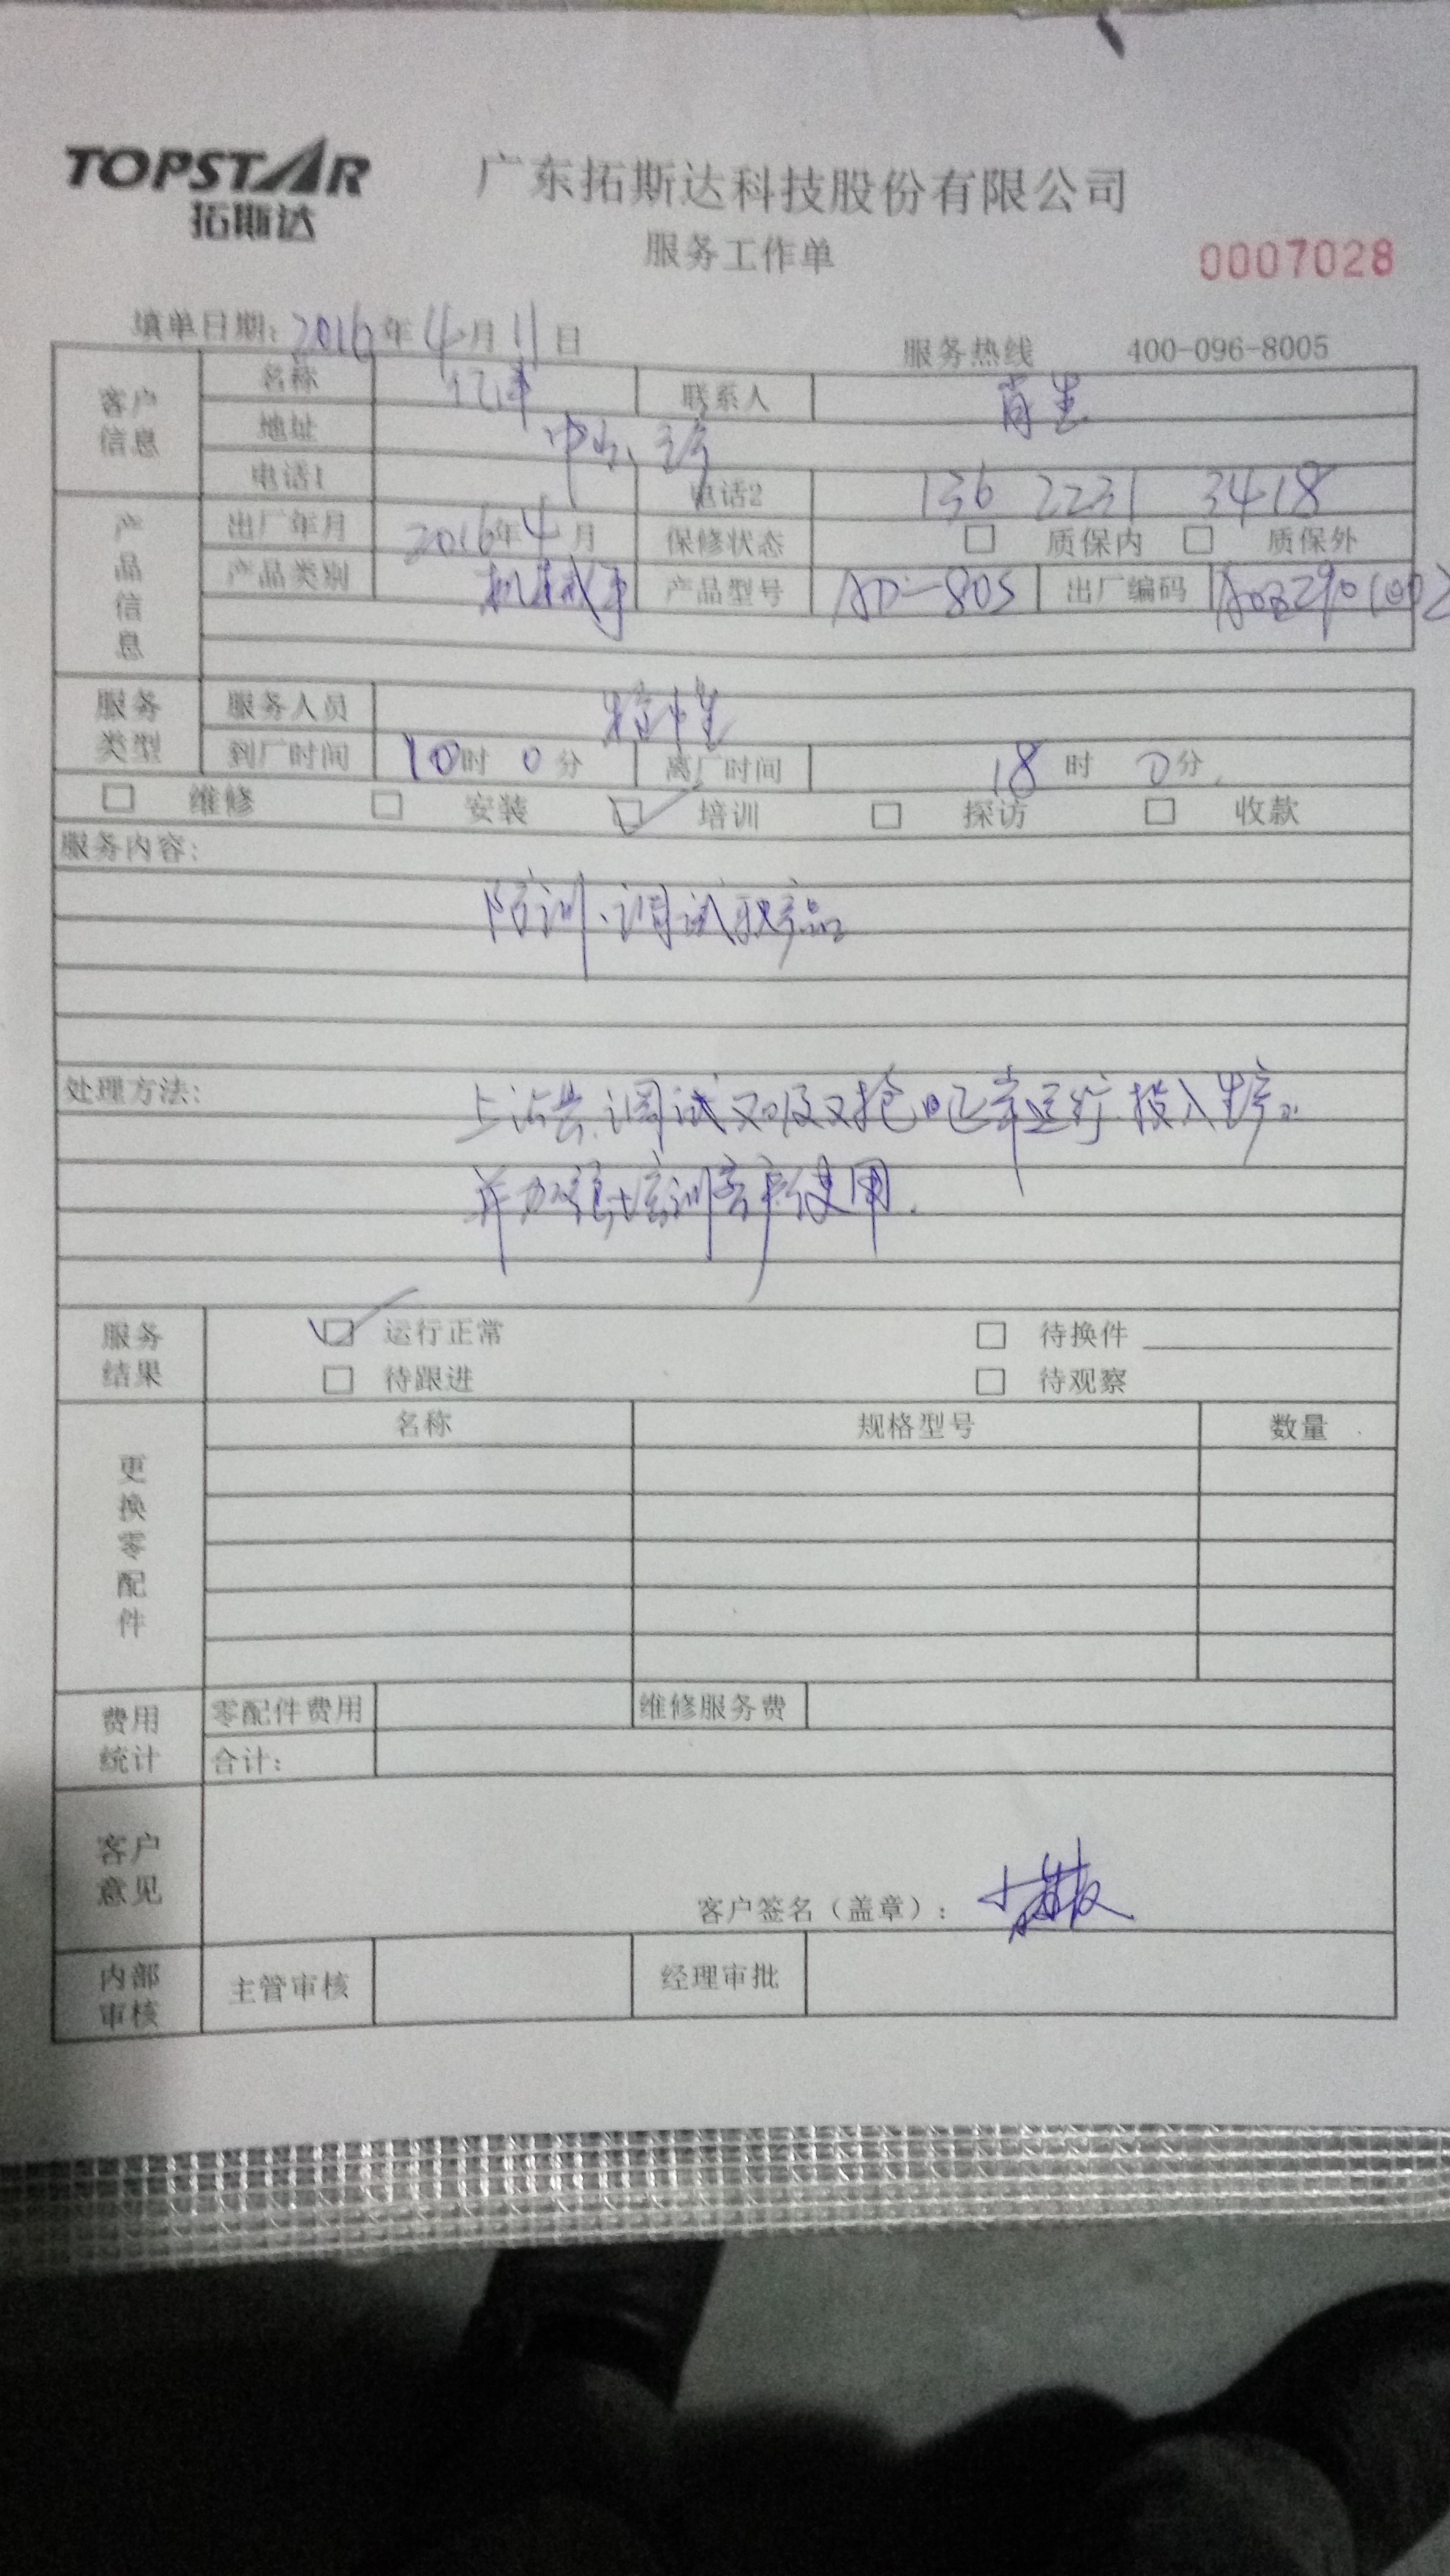 TOPSTAR
拓斯达
广东拓斯达科技股份有限公司
服务工作单
0007028
填单日期: 2016年4月11日
服务热线 400-096-8005
客户信息
名称
联系人 肖生
地址 中山
电话1
电话2 136 2231 3418
产品信息
出厂年月 2016年4月
保修状态 □ 质保内 □ 质保外
产品类别 机械手
产品型号 AD-80S
出厂编码
服务类型
服务人员
到厂时间 10时 0分
离厂时间 18时 0分
□ 维修 □ 安装 ☑ 培训 □ 探访 □ 收款
服务内容:
培训、调试产品
处理方法:
调试 运行 投入生产。
并加强培训客户使用.
服务结果
☑ 运行正常 □ 待换件
□ 待跟进 □ 待观察
更换零配件
名称 规格型号 数量
费用统计
零配件费用 维修服务费
合计:
客户意见
客户签名(盖章):
内部审核
主管审核 经理审批